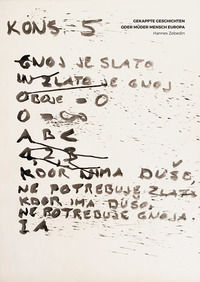 KONS. 5
GEKAPPTE GESCHICHTEN
ODER MÜDER MENSCH EUROPA
Hannes Zebedin
GNOJ JE SLATO
IN ZLATO JE GNOJ
OBOJE = 0
0 = ∞
A B C
KDOR NIMA DUŠE,
NE POTREBUJE ZLATA
KDOR IMA DUŠO,
NE POTREBUJE GNOJA.
I A